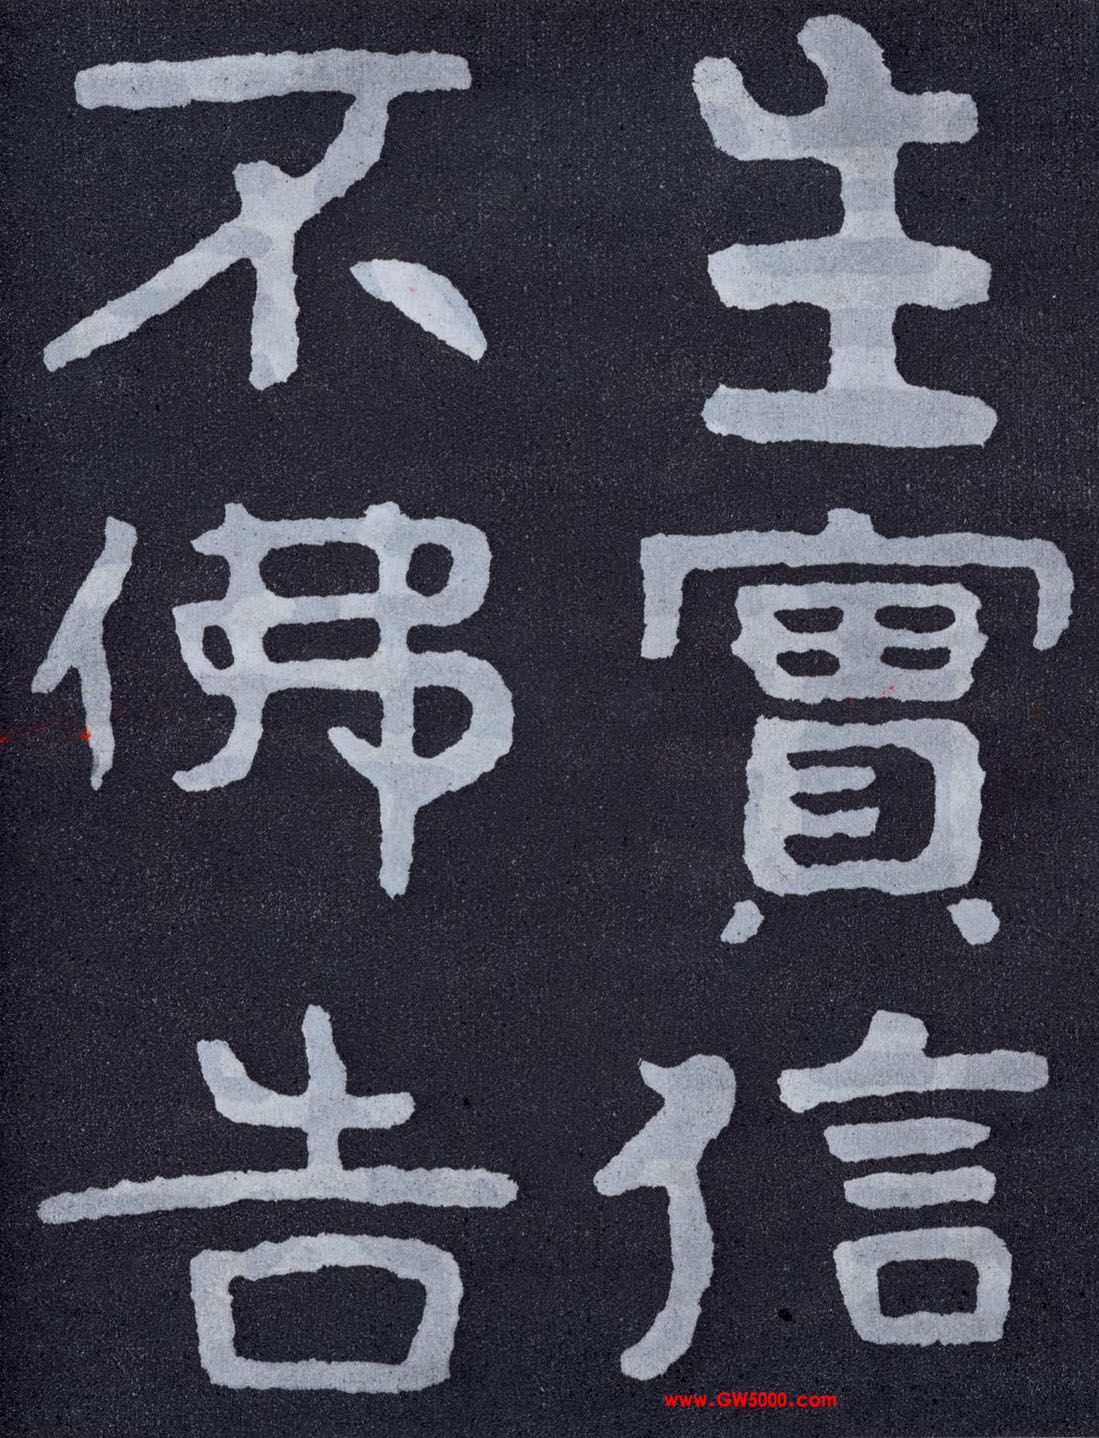 生實信
不佛告
www.GW5000.com